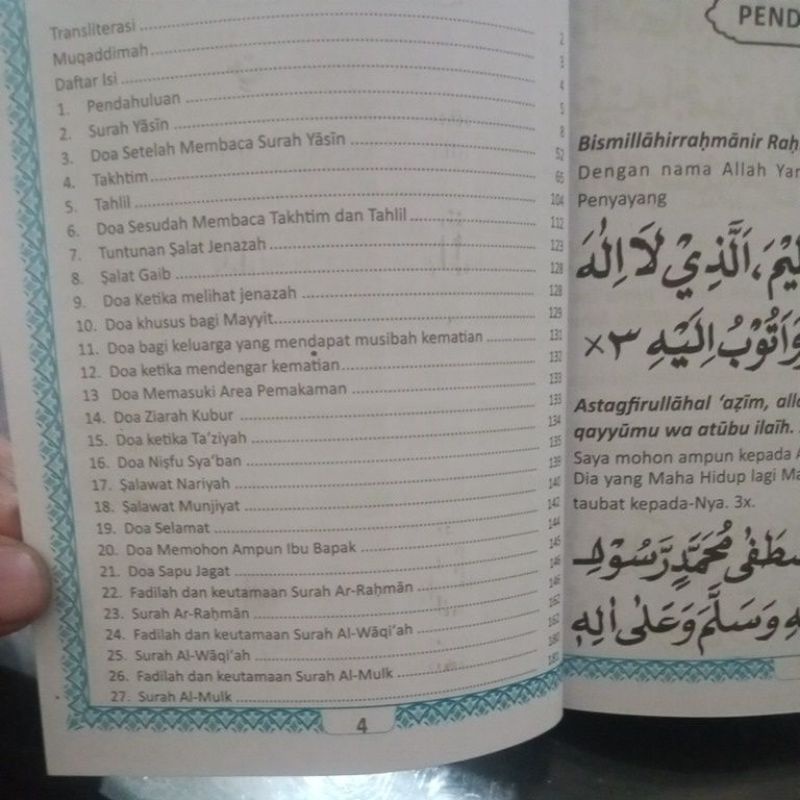 Transliterasi ..... 2
Muqaddimah ..... 3
Daftar Isi ..... 4
1. Pendahuluan ..... 5
2. Surah Yāsīn ..... 8
3. Doa Setelah Membaca Surah Yāsīn ..... 52
4. Takhtim ..... 
5. Tahlil ..... 104
6. Doa Sesudah Membaca Takhtim dan Tahlil ..... 112
7. Tuntunan Ṣalat Jenazah ..... 123
8. Ṣalat Gaib ..... 128
9. Doa Ketika melihat jenazah ..... 128
10. Doa khusus bagi Mayyit ..... 129
11. Doa bagi keluarga yang mendapat musibah kematian ..... 131
12. Doa ketika mendengar kematian ..... 132
13 Doa Memasuki Area Pemakaman ..... 133
14. Doa Ziarah Kubur ..... 133
15. Doa ketika Ta'ziyah ..... 134
16. Doa Niṣfu Sya'ban ..... 135
17. Ṣalawat Nariyah ..... 139
18. Ṣalawat Munjiyat ..... 140
19. Doa Selamat ..... 142
20. Doa Memohon Ampun Ibu Bapak ..... 144
21. Doa Sapu Jagat ..... 145
22. Fadilah dan keutamaan Surah Ar-Raḥmān ..... 146
23. Surah Ar-Raḥmān ..... 146
24. Fadilah dan keutamaan Surah Al-Wāqi'ah ..... 162
25. Surah Al-Wāqi'ah ..... 162
26. Fadilah dan keutamaan Surah Al-Mulk ..... 180
27. Surah Al-Mulk ..... 181
4
PEND
Bismillāhirraḥmānir Raḥ
Dengan nama Allah Yan
Penyayang
اَلَّذِيْ لَا اِلٰهَ
وَاَتُوْبُ اِلَيْهِ ×٣
Astagfirullāhal 'aẓīm, alla
qayyūmu wa atūbu ilaīh.
Saya mohon ampun kepada A
Dia yang Maha Hidup lagi Ma
taubat kepada-Nya. 3x.
مُحَمَّدٍ رَّسُوْلِ
وَسَلَّمَ وَعَلٰى اٰلِهٖ